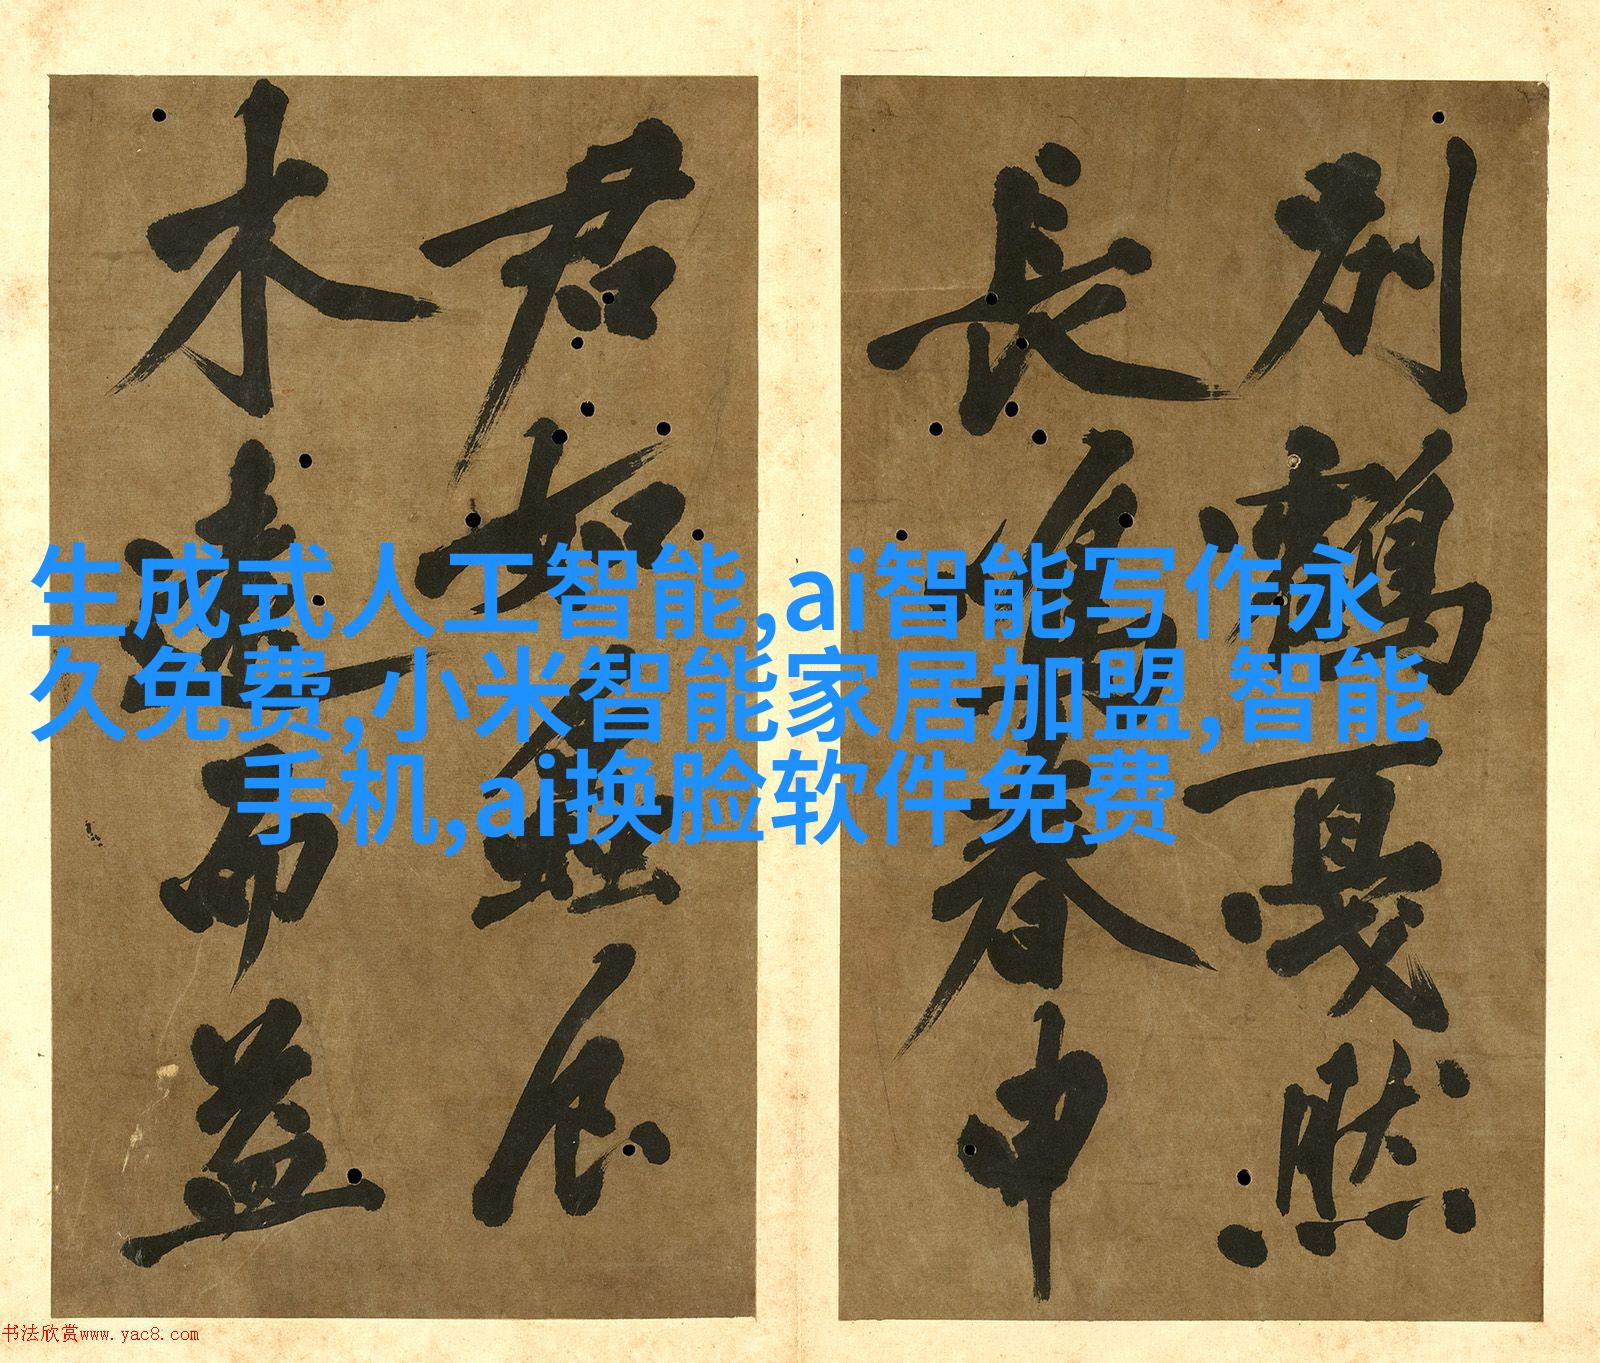 鶴戛然
長春申
君如
木遠而益
生成式人工智能,ai智能写作永
久免费,小米智能家居加盟,智能
手机,ai换脸软件免费
书法欣赏www.yac8.com